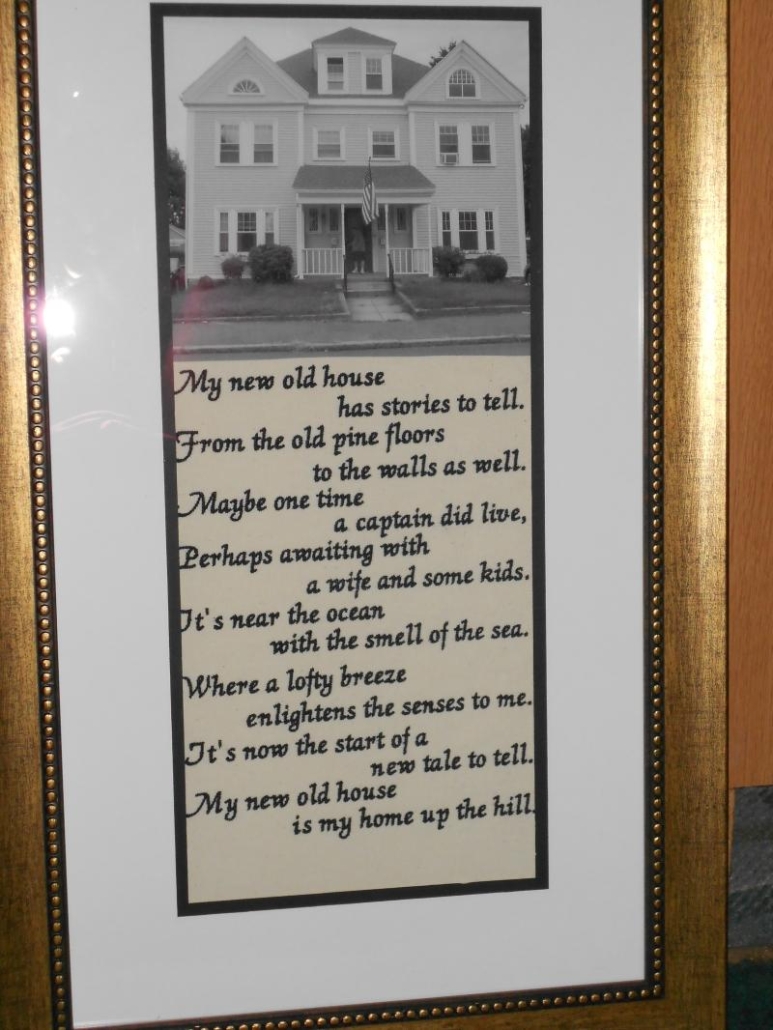 My new old house
has stories to tell.
From the old pine floors
to the walls as well.
Maybe one time
a captain did live,
Perhaps awaiting with
a wife and some kids.
It's near the ocean
with the smell of the sea.
Where a lofty breeze
enlightens the senses to me.
It's now the start of a
new tale to tell.
My new old house
is my home up the hill.